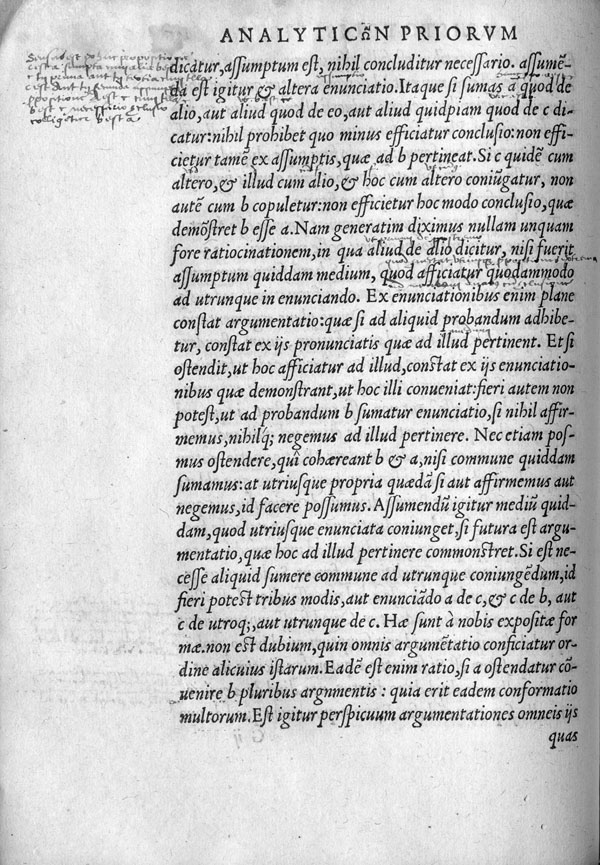 ANALYTICῶN PRIORVM
dicatur,assumptum est, nihil concluditur necessario. assumē-
da est igitur & altera enunciatio. Itaque si sumas a quod de
alio, aut aliud quod de eo, aut aliud quidpiam quod de c di-
catur:nihil prohibet quo minus efficiatur conclusio:non effi-
cietur tamē ex assumptis, quæ ad b pertineat. Si c quidē cum
altero,& illud cum alio,& hoc cum altero coniūgatur, non
autē cum b copuletur:non efficietur hoc modo conclusio, quæ
demōstret b esse a. Nam generatim diximus nullam unquam
fore ratiocinationem,in qua aliud de alio dicitur, nisi fuerit
assumptum quiddam medium, quod afficiatur quodammodo
ad utrunque in enunciando. Ex enunciationibus enim plane
constat argumentatio:quæ si ad aliquid probandum adhibe-
tur, constat ex ijs pronunciatis quæ ad illud pertinent. Et si
ostendit,ut hoc afficiatur ad illud,constat ex ijs enunciatio-
nibus quæ demonstrant,ut hoc illi conueniat:fieri autem non
potest,ut ad probandum b sumatur enunciatio,si nihil affir-
memus,nihilq́; negemus ad illud pertinere. Nec etiam pos-
mus ostendere,quî cohæreant b & a,nisi commune quiddam
sumamus:at utriusque propria quædā si aut affirmemus aut
negemus,id facere possumus. Assumendū igitur mediū quid-
dam,quod utriusque enunciata coniunget,si futura est argu-
mentatio,quæ hoc ad illud pertinere commonstret. Si est ne-
cesse aliquid sumere commune ad utrunque coniungēdum,id
fieri potest tribus modis,aut enunciādo a de c,& c de b, aut
c de utroq;,aut utrunque de c. Hæ sunt à nobis expositæ for
mæ.non est dubium,quin omnis argumētatio conficiatur or-
dine alicuius istarum. Eadē est enim ratio,si a ostendatur cō-
uenire b pluribus argnmentis : quia erit eadem conformatio
multorum. Est igitur perspicuum argumentationes omneis ijs
quas